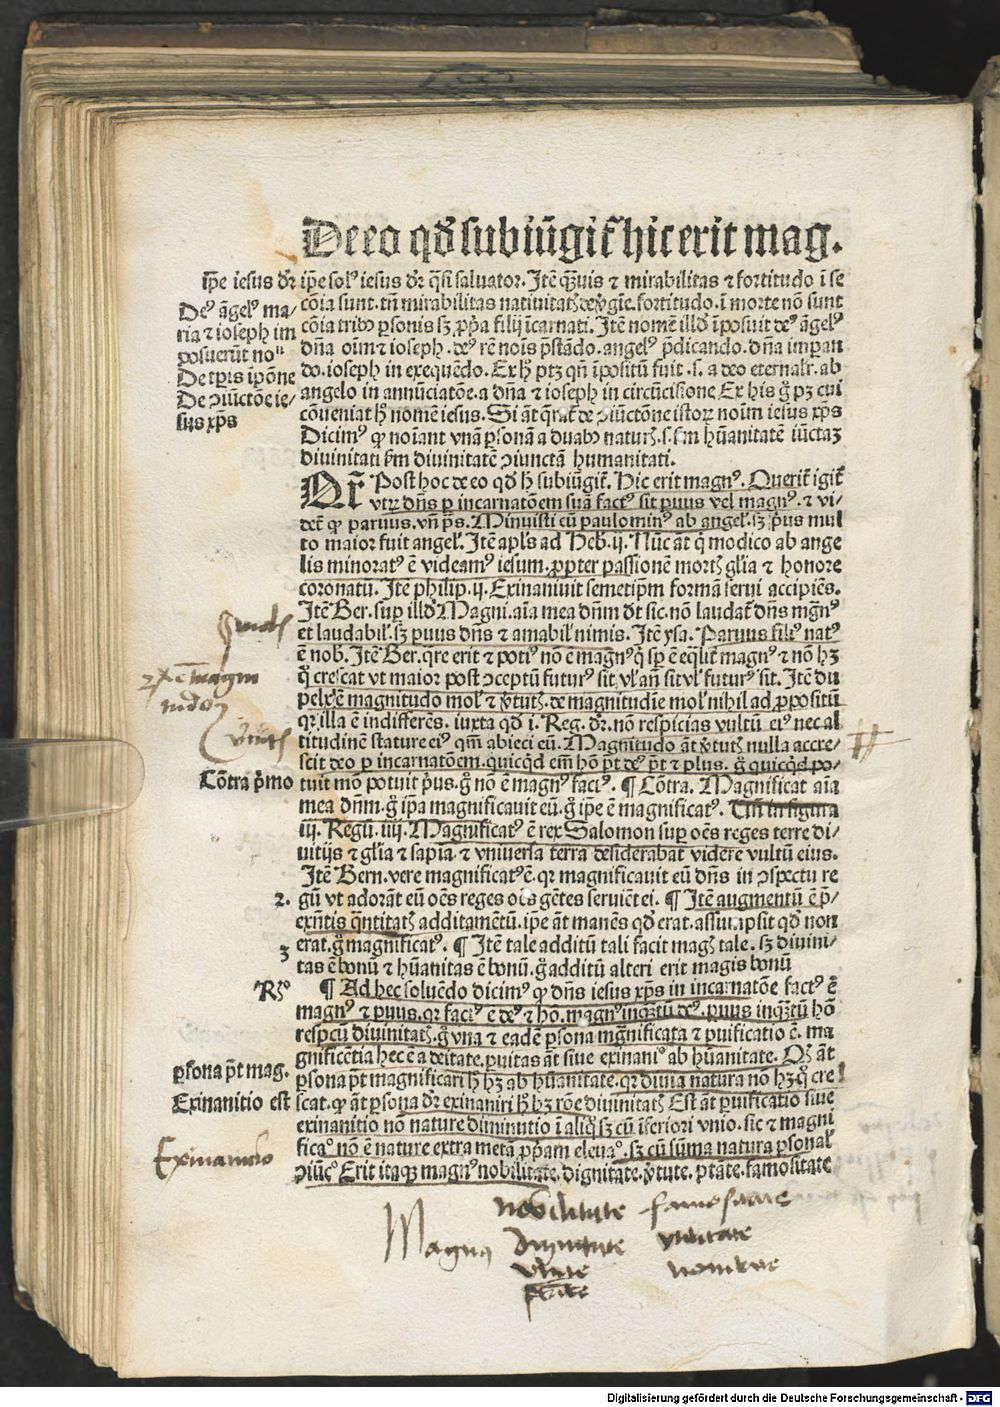 De eo qđ subiũgit᷑ hic erit mag.
ip̄e iesus dr̄
ip̄e solꝰ iesus dr̄ q̄si saluator. Itē q̄uis ⁊ mirabilitas ⁊ fortitudo ī se
cōia sunt. tn̄ mirabilitas natiuitatꝭ de v̓gīe. fortitudo. ī morte nō sunt
cōia tribꝰ ꝑsonis sꝫ ꝓp̄a filij īcarnati. Itē nomē illđ īposuit deꝰ āgelꝰ
dn̄a oīm ⁊ ioseph. deꝰ rē noīs p̄stādo. angelꝰ p̄dicando. dn̄a imꝑan
do. ioseph in exequēdo. Ex hꝭ ptꝫ qn̄ īpositū fuit .s. a deo eternalr̄. ab
angelo in annūciatōe. a dn̄a ⁊ ioseph in circūcisione Ex his g̊ pꝫ cui
cōueniat hꝭ nomē iesus. Si āt q̄rat᷑ de ꝯiūctōne istoꝝ noīm iesus xp̄s
Dicimꝰ ꝙ noīant vnā ꝑsonā a duabꝰ naturꝭ .s. ẜm hūanitatē iūctaꝫ
diuinitati ẜm diuinitatē ꝯiunctā humanitati.
Deꝰ āgelꝰ ma/
ria ⁊ ioseph im
posuerūt noⁿ
De tꝑis ip̄ōne
De ꝯiūctōe ie/
sus xp̄s
Qr̄ Post hoc de eo qđ hꝭ subiūgit᷑. Hic erit magnꝰ. Querit᷑ igit᷑
vtꝝ dn̄s ꝑ incarnatōem suā factꝰ sit ꝑuus vel magnꝰ. ⁊ vi/
det᷑ ꝙ paruus. vn̄ p̄s. Minuisti eū paulominꝰ ab angelꝭ. sꝫ p̓us mul
to maior fuit angelꝭ. Itē apl̓s ad Heb̓. ij. Nūc āt q̓ modico ab ange
lis minoratꝰ ē videamꝰ iesum. ꝓpter passionē mortꝭ gl̓ia ⁊ honore
coronatū. Itē philip. ij. Exinaniuit semetip̄m formā serui accipiēs.
Itē Ber. suꝑ illđ Magni. aīa mea dn̄m dt̄ sic. nō laudat᷑ dn̄s mg̅nꝰ
et laudabilꝭ. sꝫ ꝑuus dn̄s ⁊ amabilꝭ nimis. Itē ysa. Paruus filiꝰ natꝰ
ē nob̓. Itē Ber. q̄re erit ⁊ potiꝰ nō ē magnꝰ q̓ sꝑ ē eq̄lit᷑ magnꝰ ⁊ nō hꝫ
q̊ crescat vt maior post ꝯceptū futurꝰ sit. vl̓ an̄ sit vl̓ futurꝰ sit. Itē du
pelx̓ ē magnitudo molꝭ ⁊ v̓tutꝭ. de magnitudīe molꝭ nihil ad ꝓpositū
qr̓ illa ē indifferēs. iuxta qđ i. Reg. dr̄. nō respicias vultū eiꝰ nec al
titudinē stature eiꝰ qm̄ abieci eū. Magnitudo āt v̓tutꝭ nulla accre/
scit deo ꝑ incarnatōem. quicq̓d em̄ hō pt̄ deꝰ pt̄ ⁊ plus. g̊ quicq̓d po/
tuit mō potuit p̓us. g̊ nō ē magnꝰ factꝰ. ¶ Cōtra. Magnificat aīa
mea dn̄m. g̊ ip̄a magnificauit eū. g̊ ip̄e ē magnificatꝰ. Un̄ in figura
iij. Regū. iiij. Magnificatꝰ ē rex Salomon suꝑ oēs reges terre di/
uitijs ⁊ gl̓ia ⁊ sapīa. ⁊ vniuersa terra desiderabat videre vultū eius.
Itē Bern. vere magnificatꝰ ē. qr̓ magnificauit eū dn̄s in ꝯspectu re
gū vt adorāt eū oēs reges oēs gētes seruiēt ei. ¶ Itē augmentū ē p̄/
exn̄tis q̄ntitatꝭ additamētū. ip̄e āt manēs qđ erat. assūpsit qđ non
erat. g̊ magnificatꝰ. ¶ Itē tale additū tali facit magꝭ tale. sꝫ diuini-
tas ē bonū ⁊ hūanitas ē bonū. g̊ additū alteri erit magis bonū
Cōtra p̓mo
2.
3
Rñº
¶ Ad hec soluēdo dicimꝰ ꝙ dn̄s iesus xp̄s in incarnatōne factꝰ ē
magnꝰ ⁊ ꝑuus. qr̓ factꝰ ē deꝰ ⁊ hō. magnꝰ inq̄ztū deꝰ. ꝑuus inq̄ztū hō
respcū diuinitatꝭ. g̊ vna ⁊ eadē ꝑsona mg̅nificata ⁊ ꝑuificatio ē. ma
gnificētia hec ē a deitate. ꝑuitas āt siue exinaniº ab hūanitate. Qꝭ āt
ꝑsona pt̄ magnificari hꝭ hꝫ ab hūanitate. qr̓ diuīa natura nō hꝫ q̊ cre
scat. ꝙ āt ꝑsona dr̄ exinaniri hꝭ hꝫ rōe diuinitatꝭ Est āt ꝑuificatio siue
exinanitio nō nature diminutio ī aliq̊ sꝫ cū īferiori vnio. sic ⁊ magni
ficaº nō ē nature extra metā ꝓp̄am eleuaº. sꝫ cū sūma natura ꝑsonalꝭ
ꝯiūcº Erit itaqꝫ magnꝰ nobilitate. dignitate. v̓tute. ptāte. famositate
ꝑsona pt̄ mag.
Exinanitio est
Exinanitio
Magnꝰ
nobilitate famositate
dignitate vtilitate
v̓tute nomine
ptāte
Digitalisierung gefördert durch die Deutsche Forschungsgemeinschaft - DFG